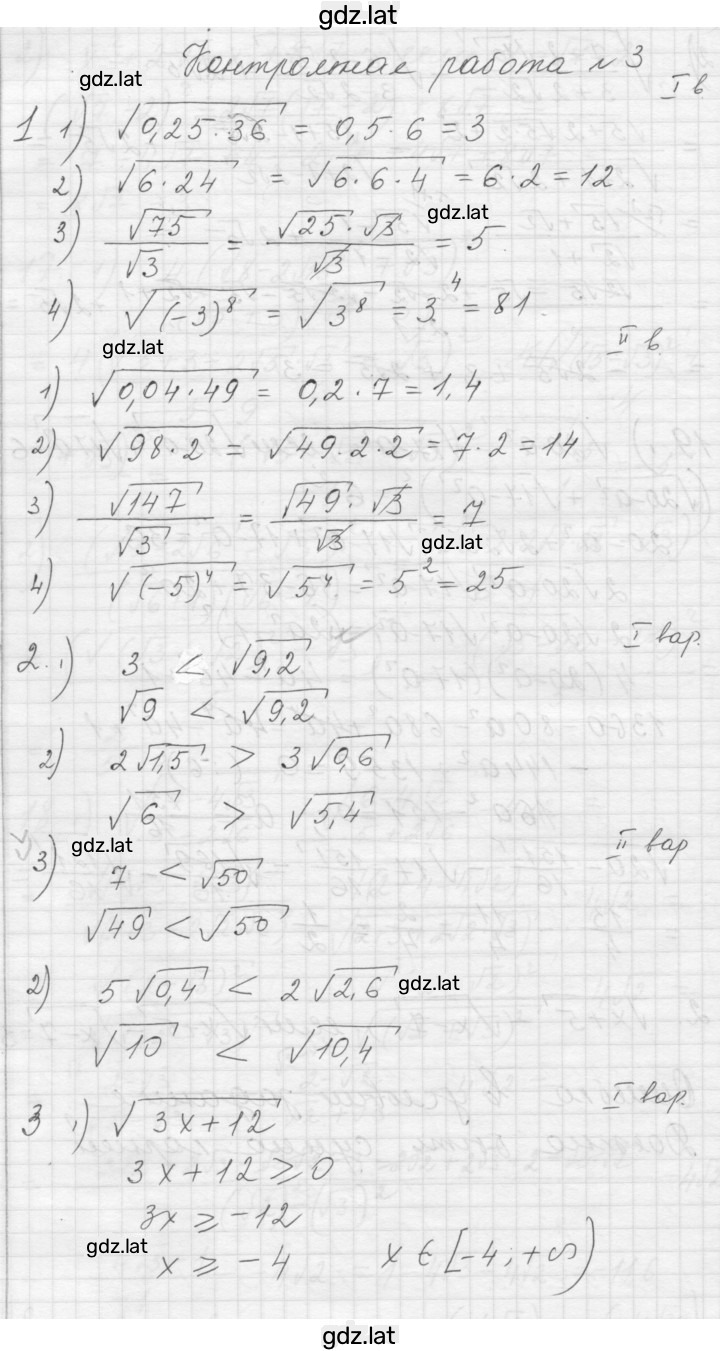 gdz.lat
Контрольная работа №3
gdz.lat
I в.
1 1) √(0,25·36) = 0,5·6 = 3
2) √(6·24) = √(6·6·4) = 6·2 = 12
gdz.lat
3) √75/√3 = (√25·√3)/√3 = 5
4) √((-3)⁸) = √(3⁸) = 3⁴ = 81
gdz.lat
II в.
1) √(0,04·49) = 0,2·7 = 1,4
2) √(98·2) = √(49·2·2) = 7·2 = 14
3) √147/√3 = (√49·√3)/√3 = 7
gdz.lat
4) √((-5)⁴) = √(5⁴) = 5² = 25
I вар.
2. 1) 3 < √9,2
√9 < √9,2
2) 2√1,5 > 3√0,6
√6 > √5,4
gdz.lat
II вар
3) 7 < √50
√49 < √50
2) 5√0,4 < 2√2,6
gdz.lat
√10 < √10,4
I вар.
3 1) √(3x+12)
3x+12 ⩾ 0
3x ⩾ -12
gdz.lat
x ⩾ -4 x ∈ [-4; +∞)
gdz.lat